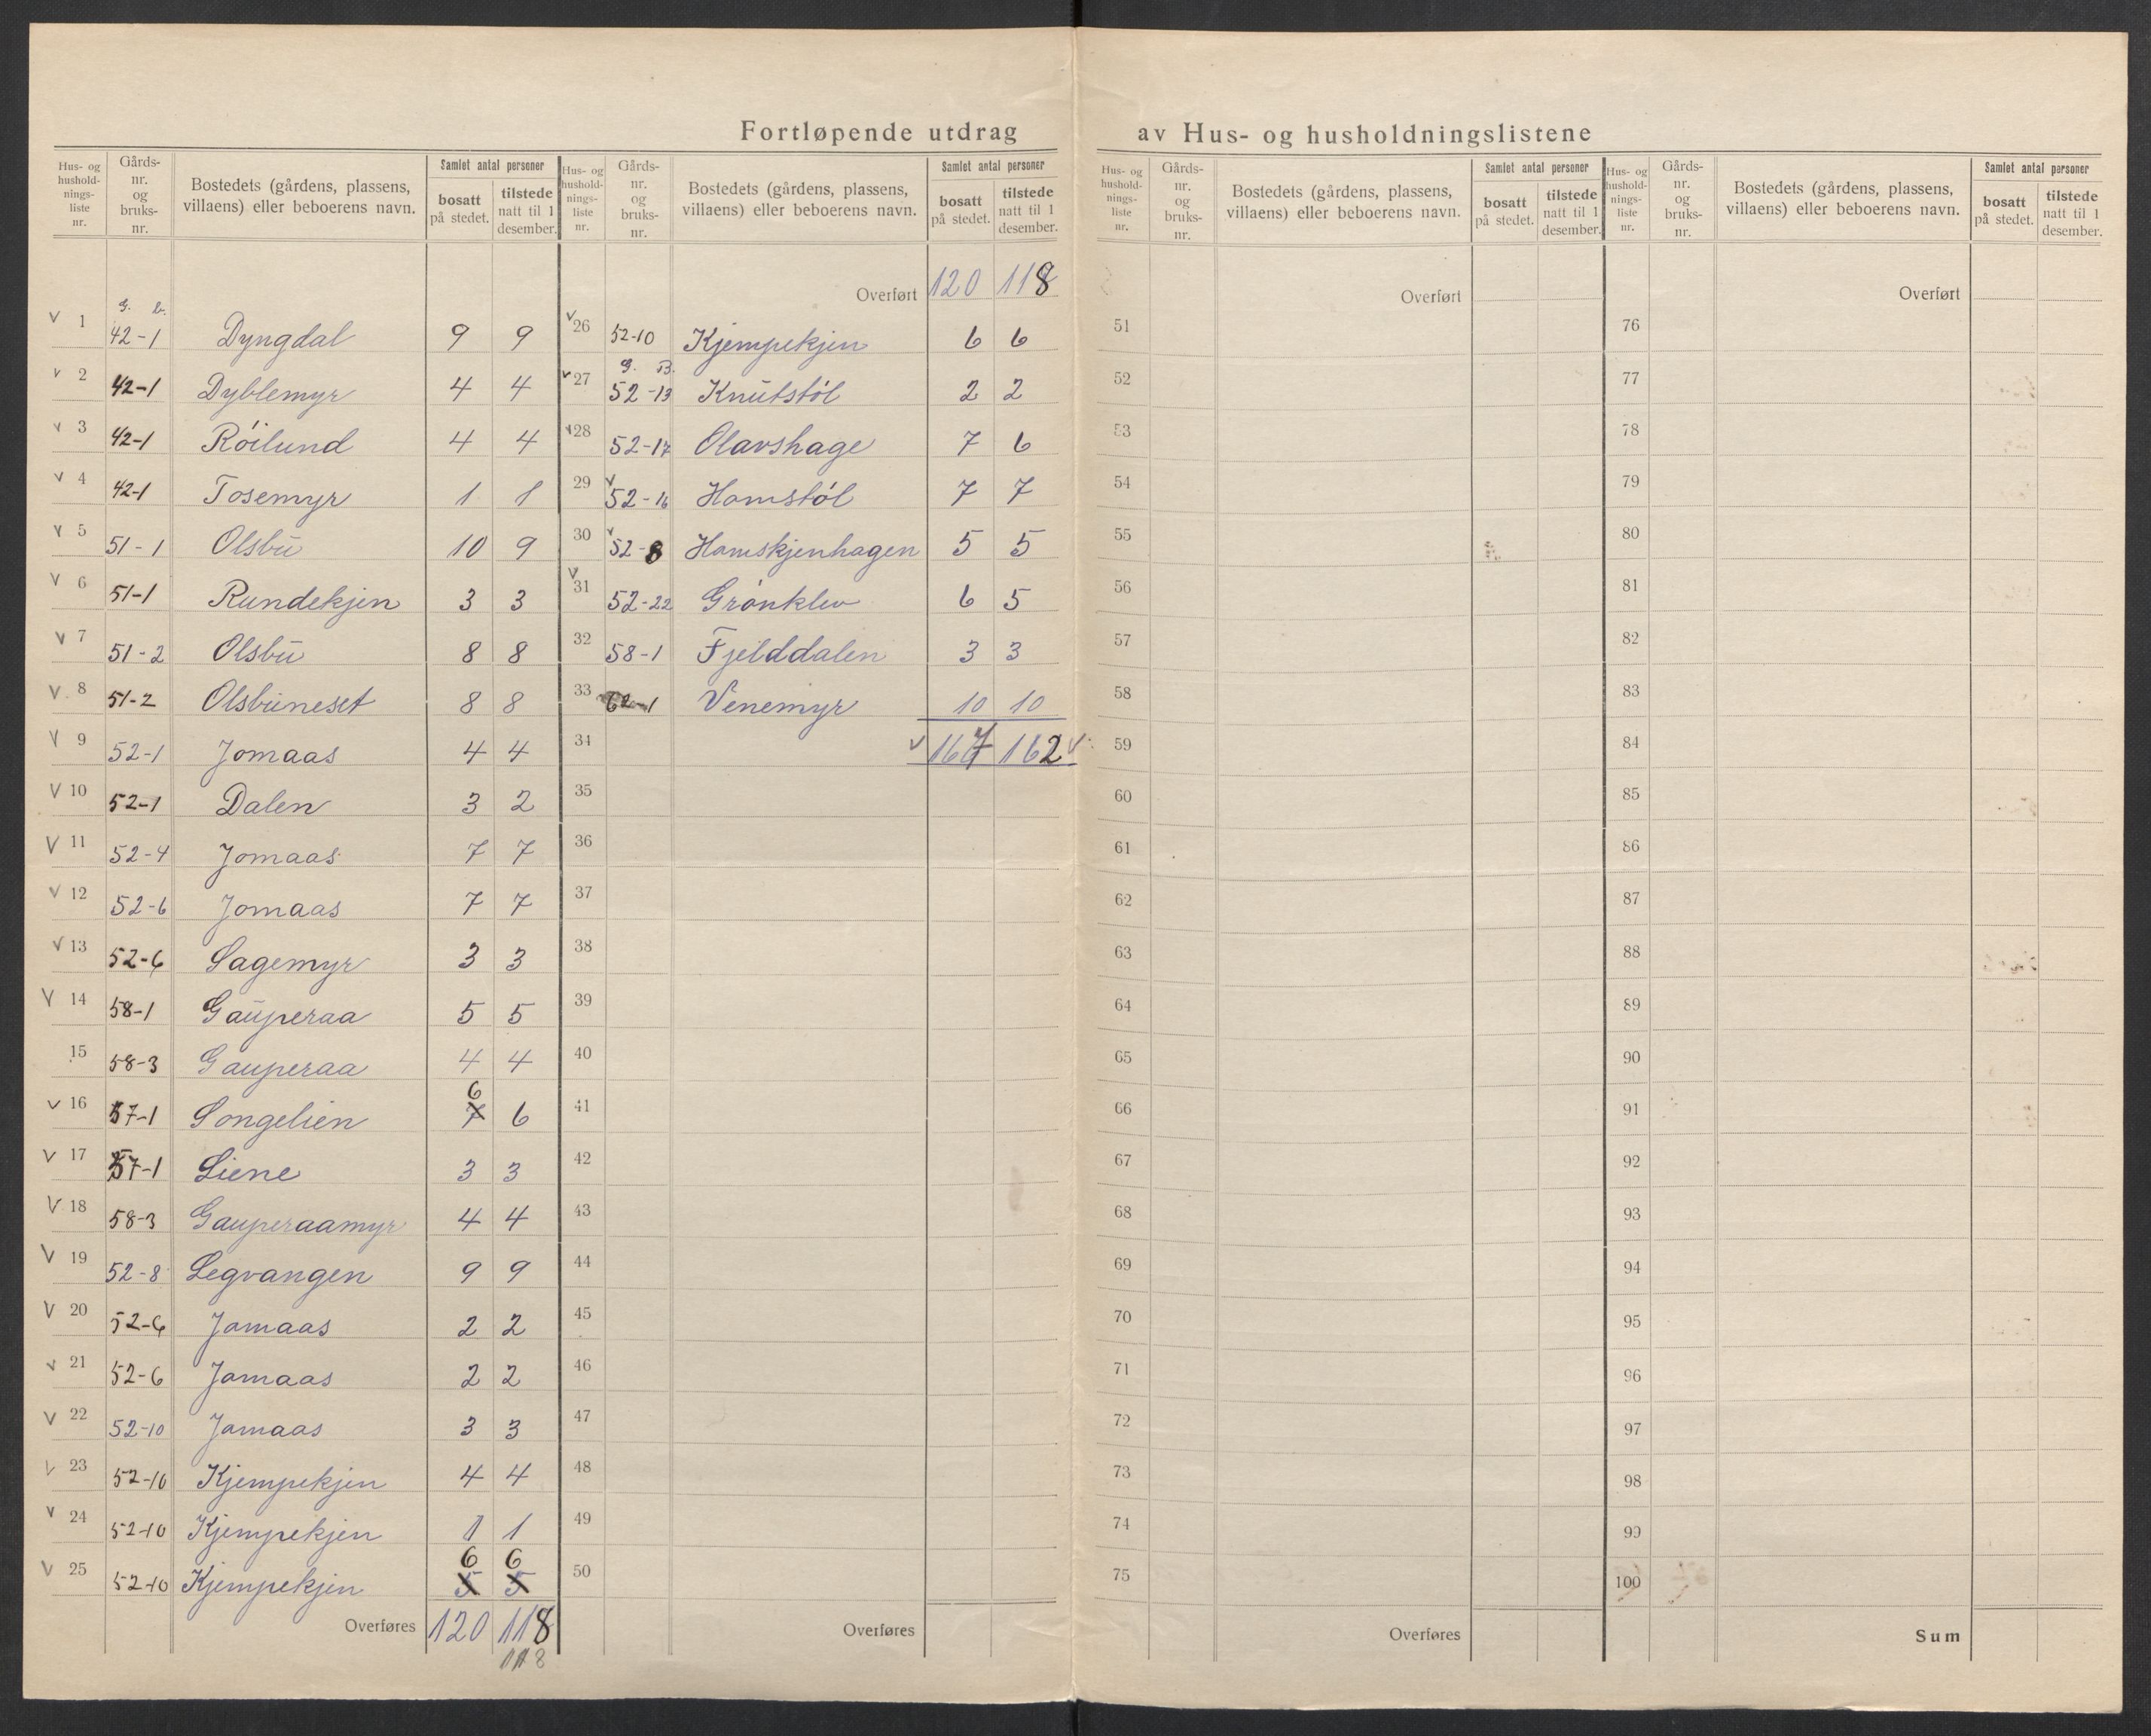 Fortløpende utdrag av Hus- og husholdningslistene
Hus- og hushold-nings-liste nr. | Gårds-nr. og bruks-nr. | Bostedets (gårdens, plassens, villaens) eller beboerens navn. | Samlet antal personer | bosatt på stedet. | tilstede natt til 1 desember.
g. b.
v 1 42-1 Dyngdal 9 9
v 2 42-1 Dyblemyr 4 4
v 3 42-1 Röilund 4 4
v 4 42-1 Tosemyr 1 1
v 5 51-1 Olsbu 10 9
v 6 51-1 Rundekjen 3 3
v 7 51-2 Olsbu 8 8
v 8 51-2 Olsbuneset 8 8
v 9 52-1 Jomaas 4 4
v 10 52-1 Dalen 3 2
v 11 52-4 Jomaas 7 7
v 12 52-6 Jomaas 7 7
v 13 52-6 Sagemyr 3 3
v 14 58-1 Gauperaa 5 5
15 58-3 Gauperaa 4 4
6
v 16 57-1 Songelien 7 6
v 17 57-1 Liene 3 3
v 18 58-3 Gauperaamyr 4 4
v 19 52-8 Legvangen 9 9
v 20 52-6 Jomaas 2 2
v 21 52-6 Jomaas 2 2
v 22 52-10 Jomaas 3 3
v 23 52-10 Kjempekjen 4 4
v 24 52-10 Kjempekjen 1 1
6 6
v 25 52-10 Kjempekjen 5 5
Overføres 120 118
118
Hus- og hushold-nings-liste nr. | Gårds-nr. og bruks-nr. | Bostedets (gårdens, plassens, villaens) eller beboerens navn. | Samlet antal personer | bosatt på stedet. | tilstede natt til 1 desember.
Overført 120 118
v 26 52-10 Kjempekjen 6 6
g. B.
v 27 52-13 Knutstöl 2 2
v 28 52-17 Olavshage 7 6
29 v 52-16 Homstöl 7 7
30 v 52-8 Homskjenhagen 5 5
v 31 52-22 Grönklev 6 5
32 58-1 Fjelddalen 3 3
33 62-1 Venemyr 10 10
34 v 167 162 v
35
36
37
38
39
40
41
42
43
44
45
46
47
48
49
50
Overføres
Hus- og hushold-nings-liste nr. | Gårds-nr. og bruks-nr. | Bostedets (gårdens, plassens, villaens) eller beboerens navn. | Samlet antal personer | bosatt på stedet. | tilstede natt til 1 desember.
Overført
51
52
53
54
55
56
57
58
59
60
61
62
63
64
65
66
67
68
69
70
71
72
73
74
75
Overføres
Hus- og hushold-nings-liste nr. | Gårds-nr. og bruks-nr. | Bostedets (gårdens, plassens, villaens) eller beboerens navn. | Samlet antal personer | bosatt på stedet. | tilstede natt til 1 desember.
Overført
76
77
78
79
80
81
82
83
84
85
86
87
88
89
90
91
92
93
94
95
96
97
98
99
100
Sum